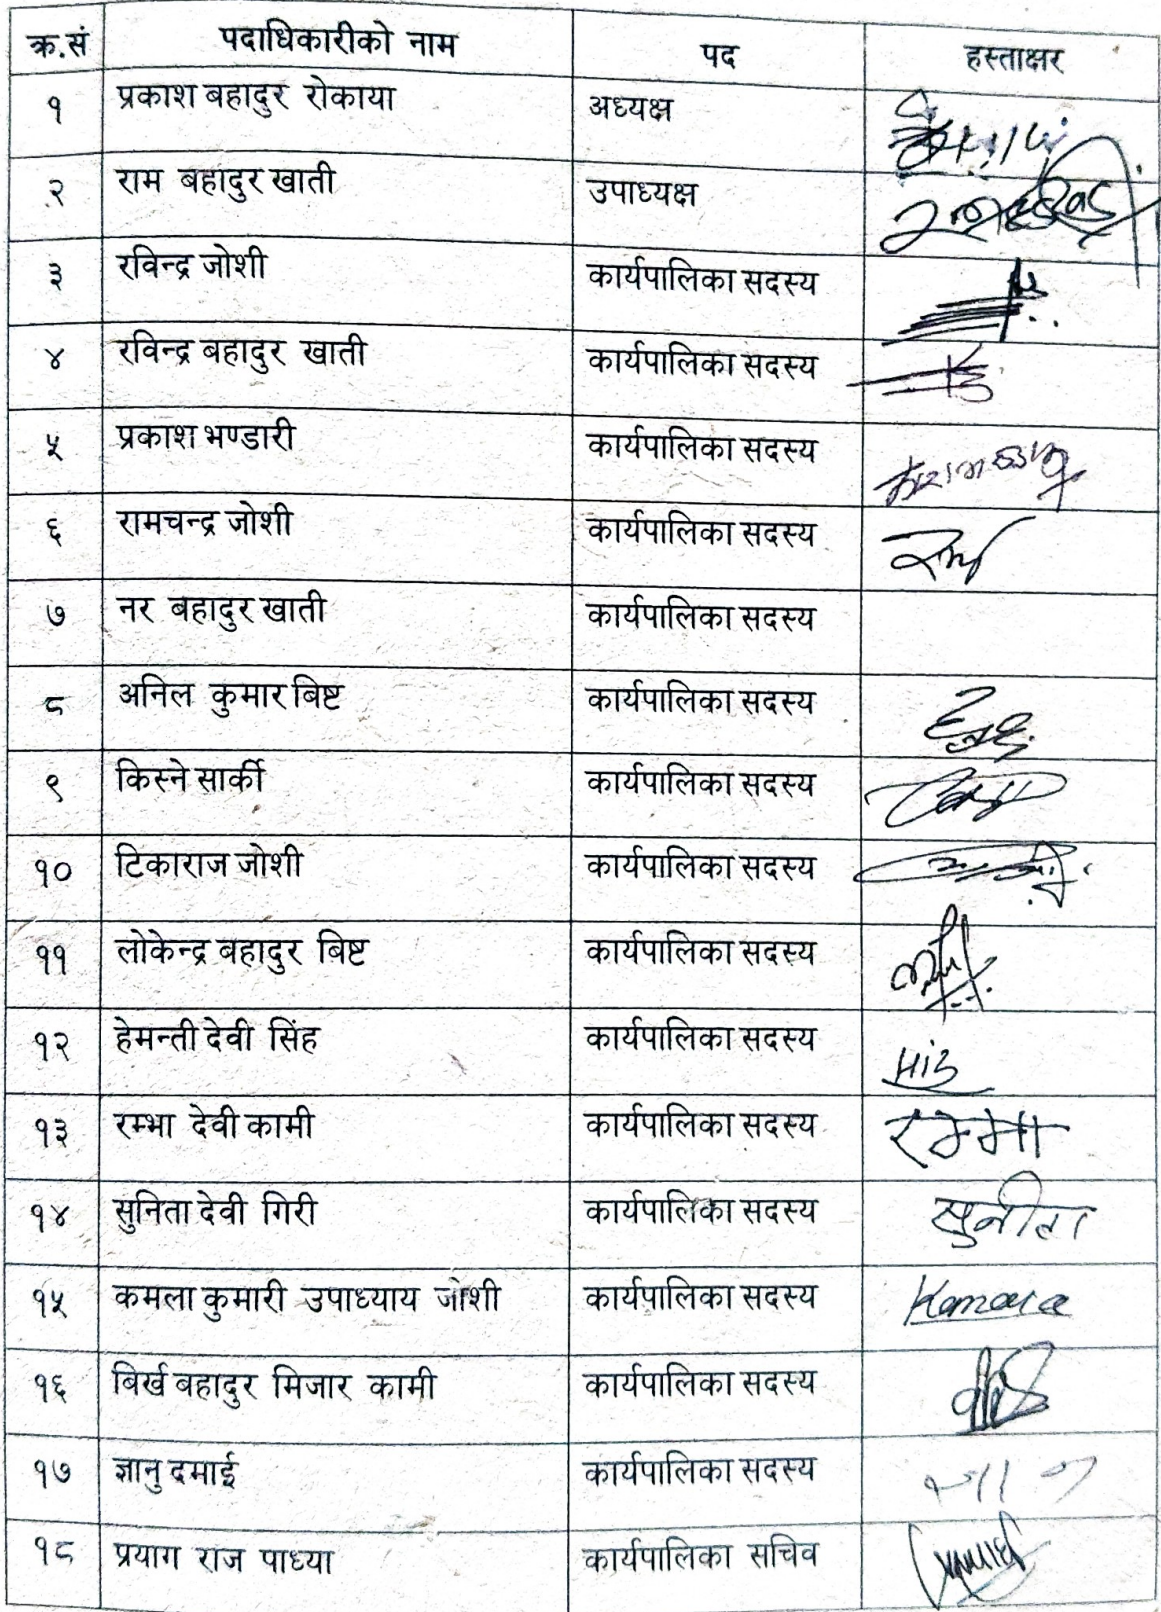 क्र.सं पदाधिकारीको नाम पद हस्ताक्षर
१ प्रकाश बहादुर रोकाया अध्यक्ष
२ राम बहादुर खाती उपाध्यक्ष
३ रविन्द्र जोशी कार्यपालिका सदस्य
४ रविन्द्र बहादुर खाती कार्यपालिका सदस्य
५ प्रकाश भण्डारी कार्यपालिका सदस्य
६ रामचन्द्र जोशी कार्यपालिका सदस्य
७ नर बहादुर खाती कार्यपालिका सदस्य
८ अनिल कुमार बिष्ट कार्यपालिका सदस्य
९ किस्ने सार्की कार्यपालिका सदस्य
१० टिकाराज जोशी कार्यपालिका सदस्य
११ लोकेन्द्र बहादुर बिष्ट कार्यपालिका सदस्य
१२ हेमन्ती देवी सिंह कार्यपालिका सदस्य
१३ रम्भा देवी कामी कार्यपालिका सदस्य रम्भा
१४ सुनिता देवी गिरी कार्यपालिका सदस्य सुनीता
१५ कमला कुमारी उपाध्याय जोशी कार्यपालिका सदस्य Kamala
१६ बिर्ख बहादुर मिजार कामी कार्यपालिका सदस्य
१७ ज्ञानु दमाई कार्यपालिका सदस्य
१८ प्रयाग राज पाध्या कार्यपालिका सचिव